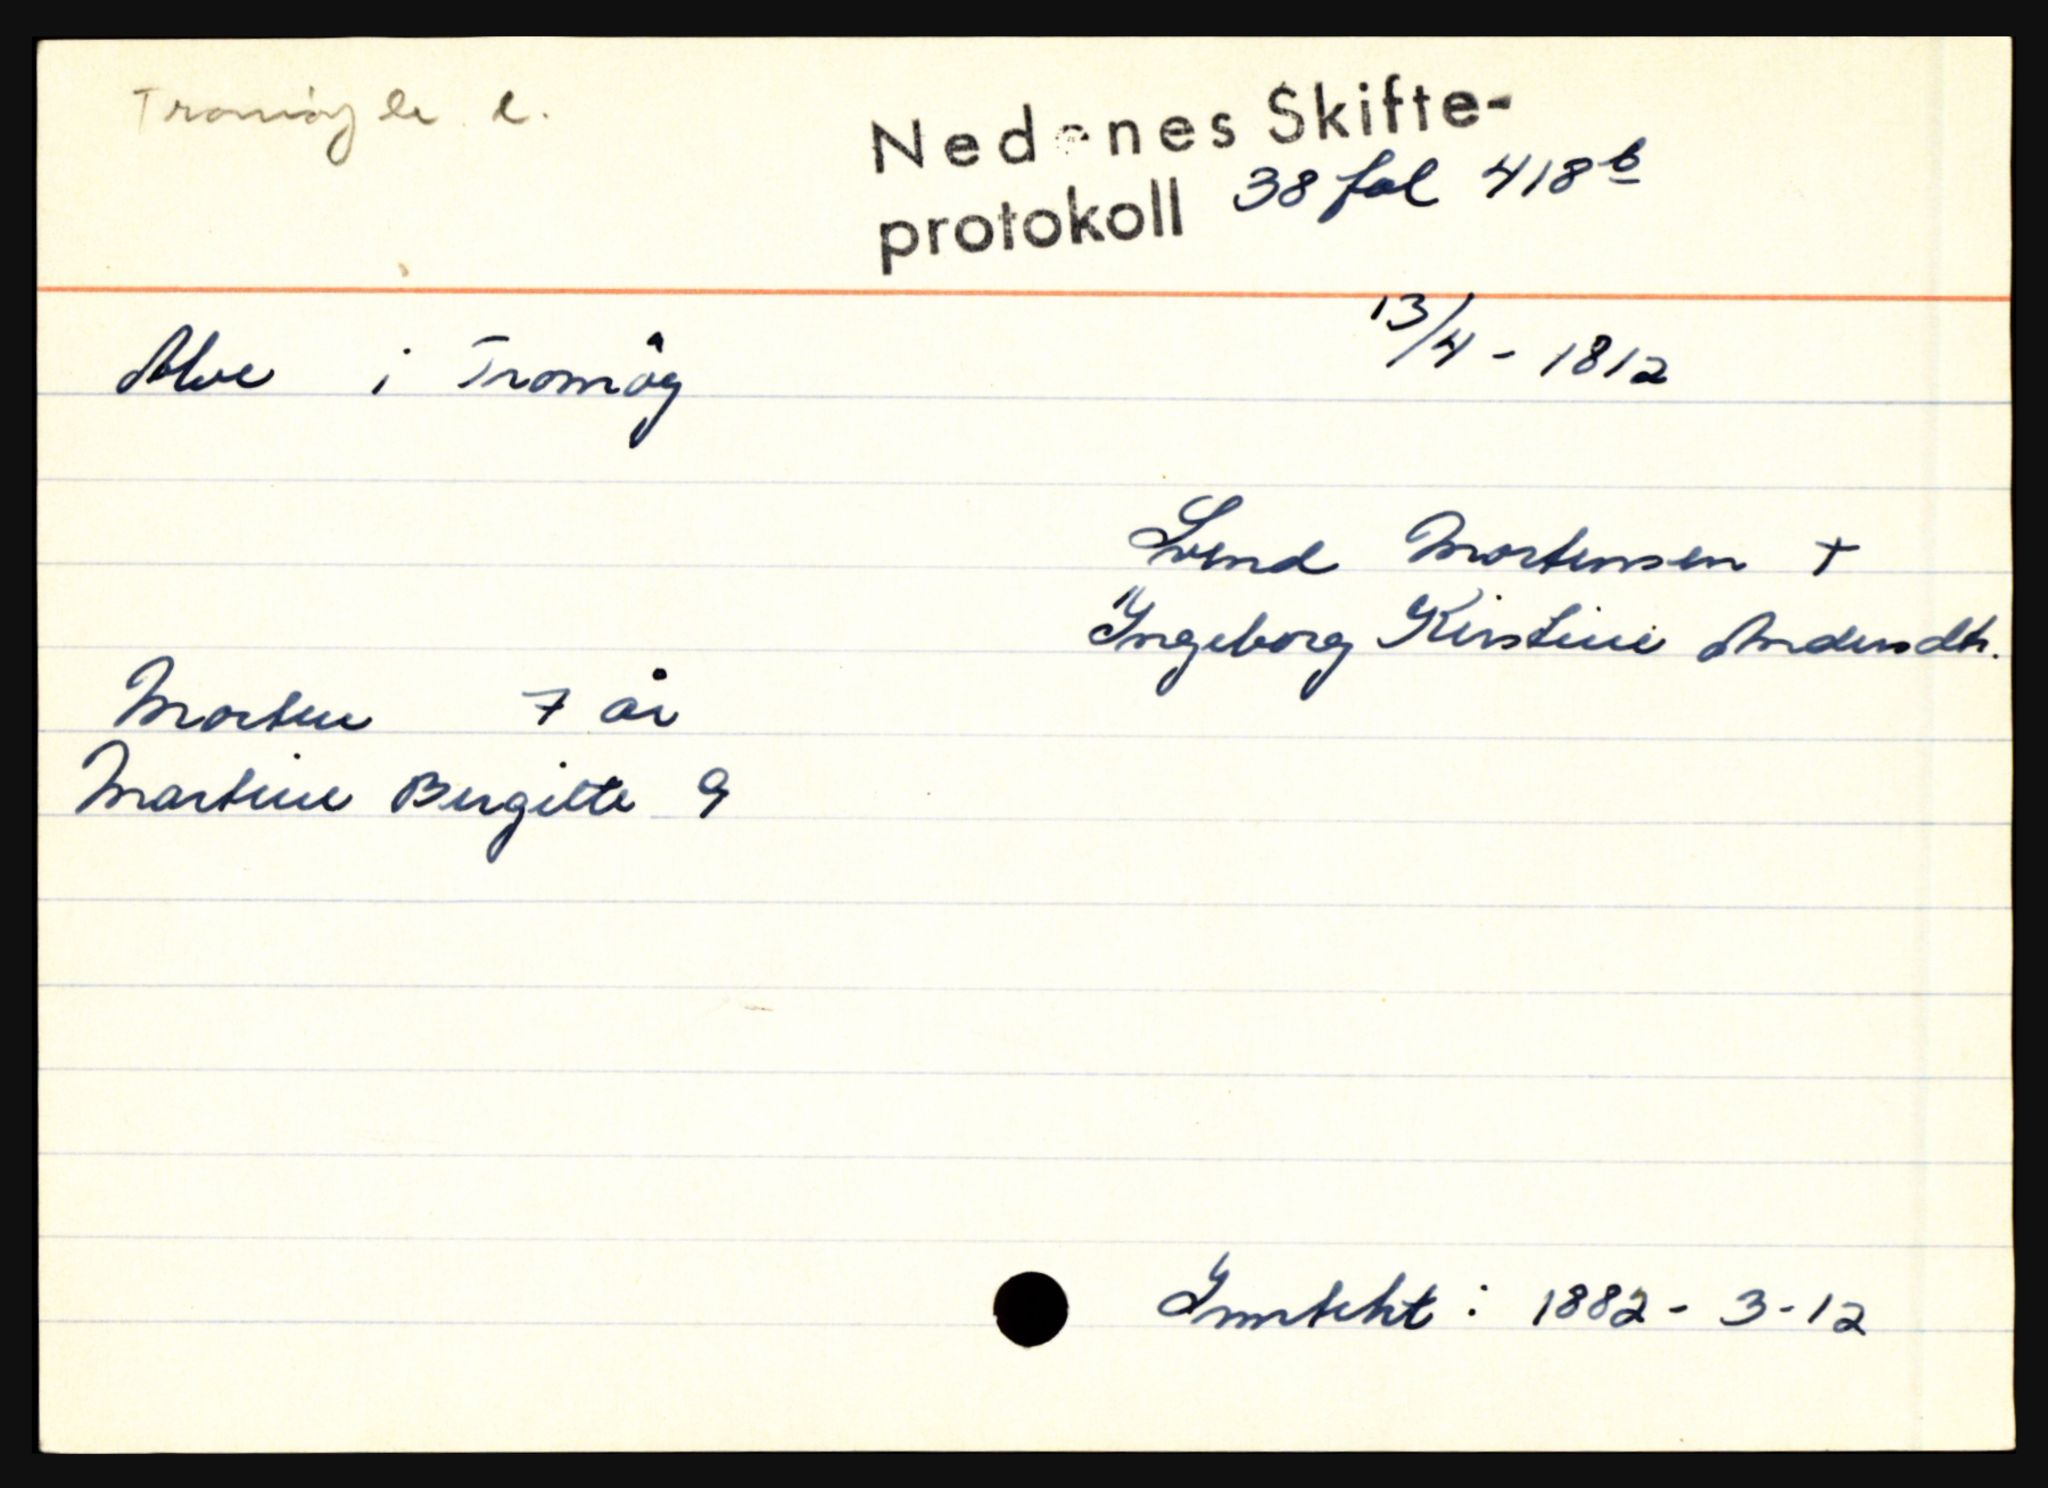 Tromöy le l.
Nedenes Skifte-
protokoll 38 fol 418 b
13/4 - 1812
Alve i Tromöy
Svend Mortensen +
Ingeborg Kirstine Andersdtr.
Morten 7 år
Martine Birgitte 9
Inntekt : 1882 - 3 - 12